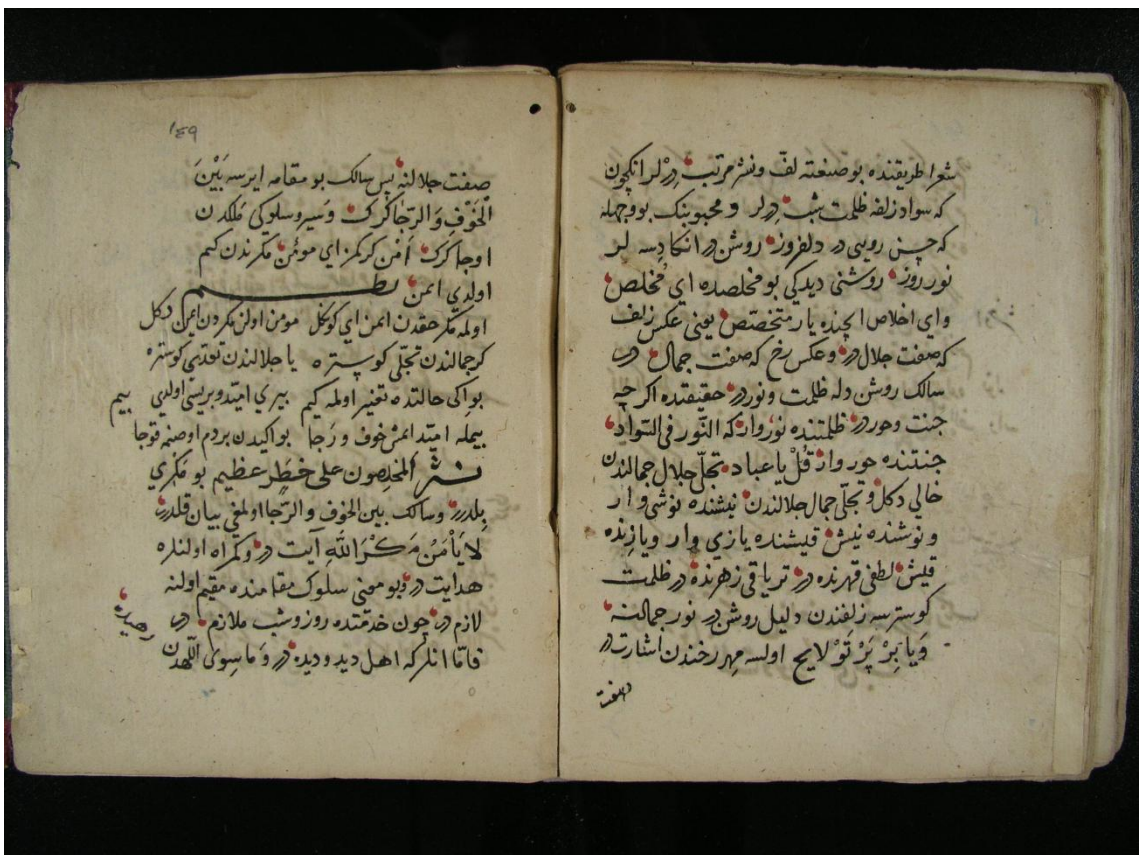 شعرا طريقنده بو صنعته لفّ ونشر مرتب درلر انكچون
كه سواد زلفه ظلمت شب درلر و محبوبنك بو وجهله
كه حسن رويى در دلفروز روشن در انكا دسه لر
نور روز روشنى ديدكى بو مخلصده اى مخلص
واى اخلاص ايچنده يار متخصص يعنى عكس زلف
كه صفت جلال در وعكس رخ كه صفت جمال در
سالك روشن دله ظلمت ونوردر حقيقتده اكر چه
جنت وحوردر ظلمتنده نور وار كه النّور فى السّواد
جنتنده جور وار قُلْ يا عباد تجلّى جلال جمالندن
خالى دكل وتجلّى جمال جلالندن نيشنده نوشى وار
ونوشنده نيش قيشنده يازى وار ويازنده
قيش لطفى قهرنده در ترياقى زهرنده در ظلمت
كوسترسه زلفندن دليل روشن در نور جمالنه
وَيا بِرْ پَرْتَوْ لايح اولسه مهر رخندن اشارت در
صفت
١٤٩
صفت جلالنه پس سالك بو مقامه ايرسه بَيْنَ
الْخَوْفِ وَالرَّجَا كرك وسير وسلوكى فلكدن
اوجا كرك اَمْن كركمز اى مومن مكرندن كيم
اولدي ايمن نظم
اولمه مكر حقدن ايمن اى كوكل مومن اولن مكردن ايمن دكل
كر جمالندن تجلّى كوستره يا جلالندن تعدّى كوستره
بو اكى حالتده تغير اولمه كيم بيرى اميد وبريسى اولدي بيم
بيمله اميّد ايمش خوف و رَجا بو اكيدن بردم اوصنمه قوجا
نثر اَلْمُخلِصون على خطَرٍ عظيم بو فكري
بلدرر وسالك بين الخوف والرّجا اولمغى بيان قلدرر
لا يَأْمَنُ مَكْرَ اللهِ آيت در وكمراه اولنلره
هدايت در وبو معنى سلوك مقامنده مقيم اولنه
لازم در چون خدمتده روز وشب ملازم در
فامّا انلر كه اهل ديد وديده در وَمَا سِوَى اللّهدن
رهيده